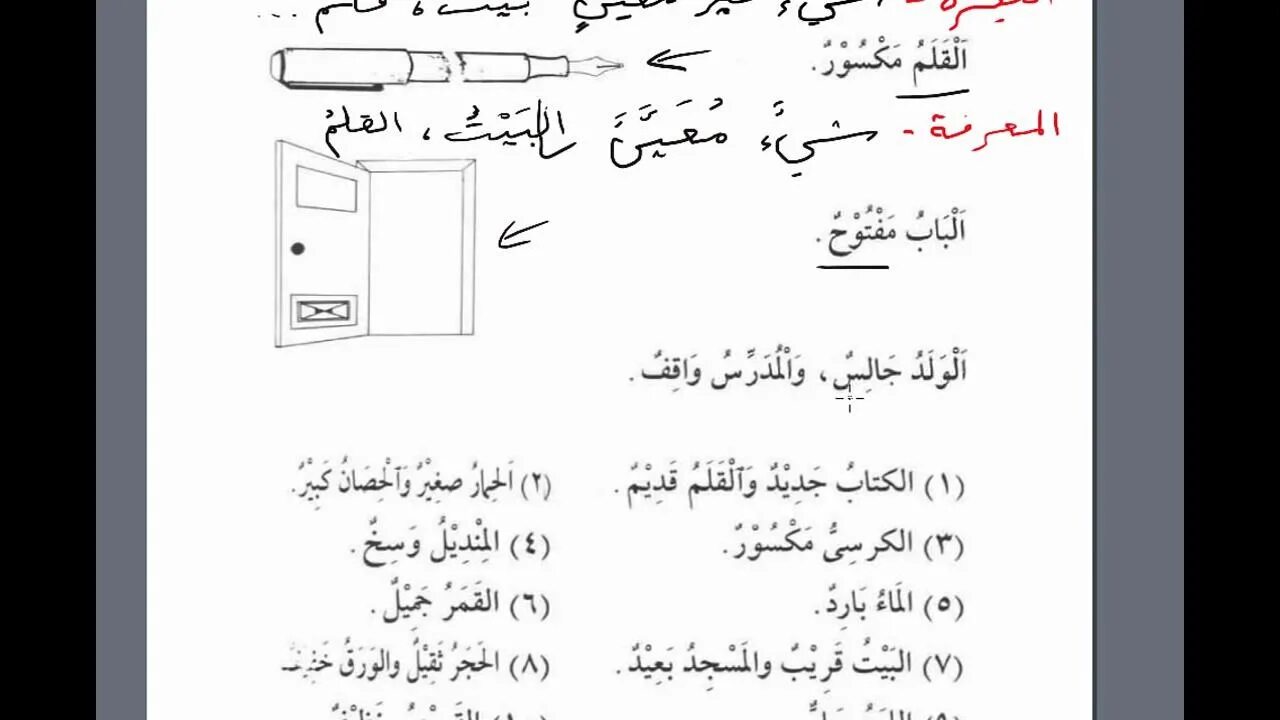 النكرة - شيء غير معين بيت، قلم ...
اَلْقَلَمُ مَكْسُوْرٌ.
المعرفة - شيءٌ مُعَيَّنٌ البَيْتُ، القلمُ
اَلْبَابُ مَفْتُوْحٌ.
اَلْوَلَدُ جَالِسٌ، وَالْمُدَرِّسُ وَاقِفٌ.
(١) الكتابُ جَدِيْدٌ وَٱلْقَلَمُ قَدِيْمٌ. (٢) اَلحِمارُ صغِيْرٌ وَٱلْحِصَانُ كَبِيْرٌ.
(٣) الكرسِىُّ مَكْسُوْرٌ. (٤) المِنْدِيْلُ وَسِخٌ.
(٥) المَاءُ بَارِدٌ. (٦) القَمَرُ جَمِيْلٌ.
(٧) البَيْتُ قَرِيْبٌ والمَسْجِدُ بَعِيْدٌ. (٨) الحَجَرُ ثَقِيْلٌ والوَرَقُ خَفِيْفٌ